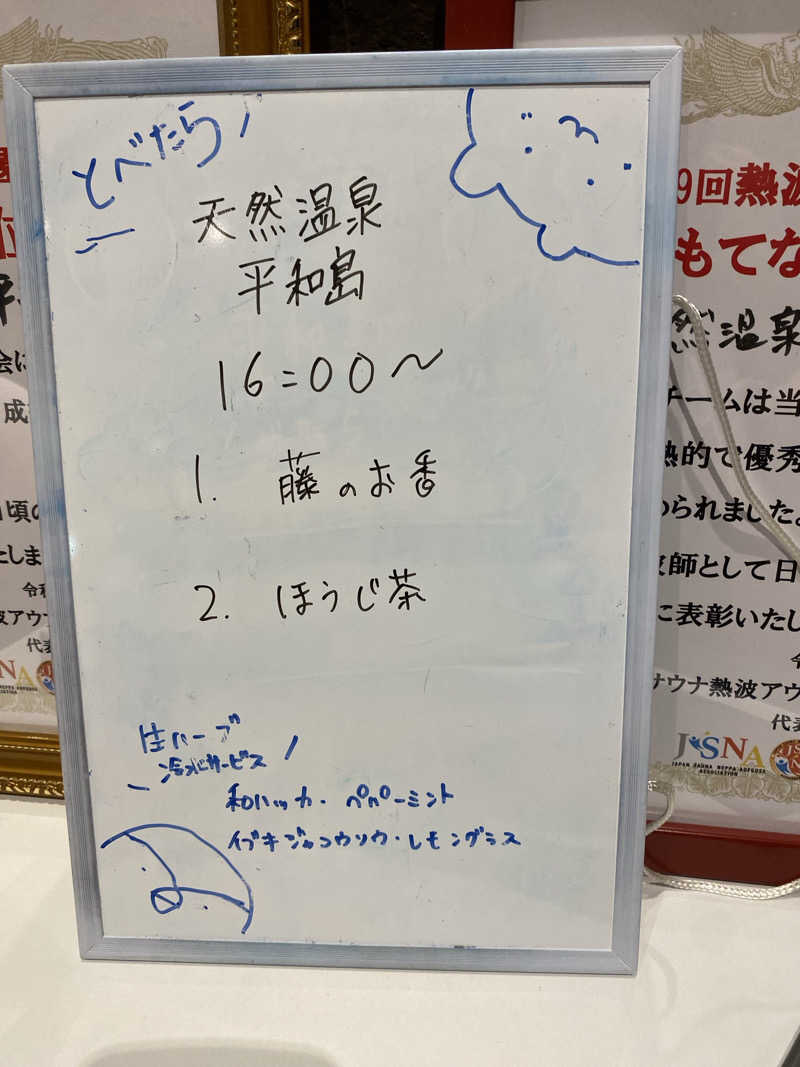 とべたら
天然温泉
平和島
16:00〜
1. 藤のお香
2. ほうじ茶
生ハーブ
冷水サービス
和ハッカ・ペパーミント
イブキジャコウソウ・レモングラス
9回熱波
もてな
然温泉
チームは当
熱的で優秀
められました
波師として日
に表彰いたし
サウナ熱波アウ
代表
JSNA
JAPAN SAUNA NEPPA AUFGUSS
ASSOCIATION
位
会に
成
頃の
たしま
令和
波アウフ
代表
SNA